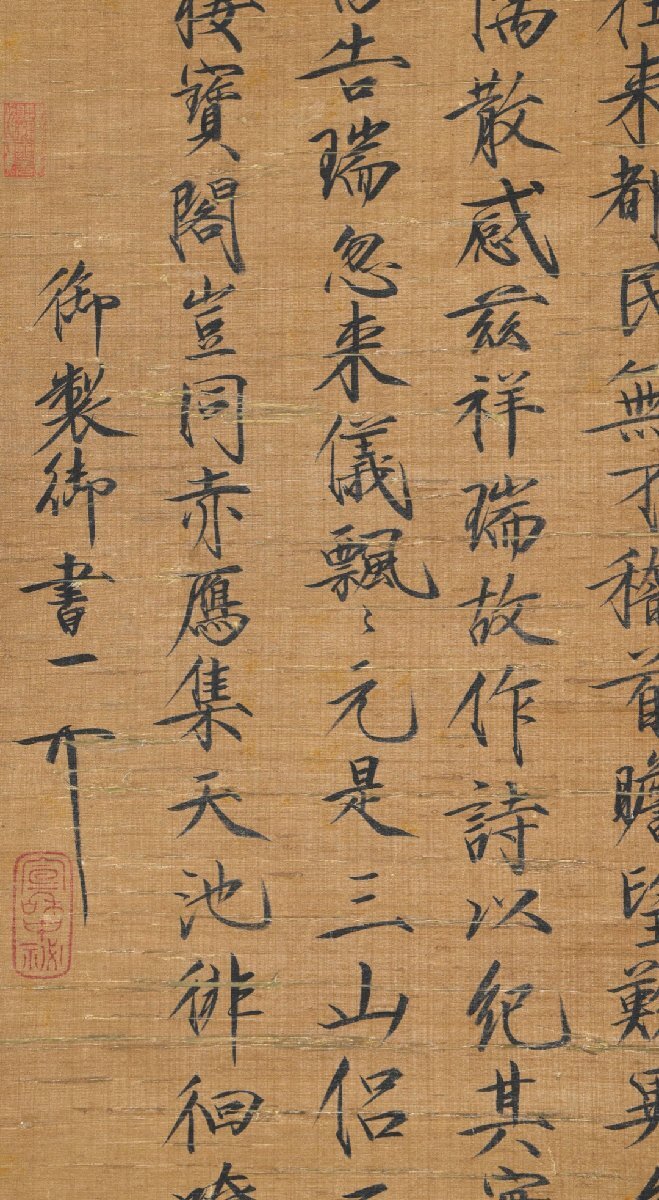 来都民無不稽首瞻望歎異
散感兹祥瑞故作詩以紀其實
告瑞忽来儀飄〻元是三山侣
棲寶閣豈同赤鴈集天池徘徊
御製御書
宣和中秘